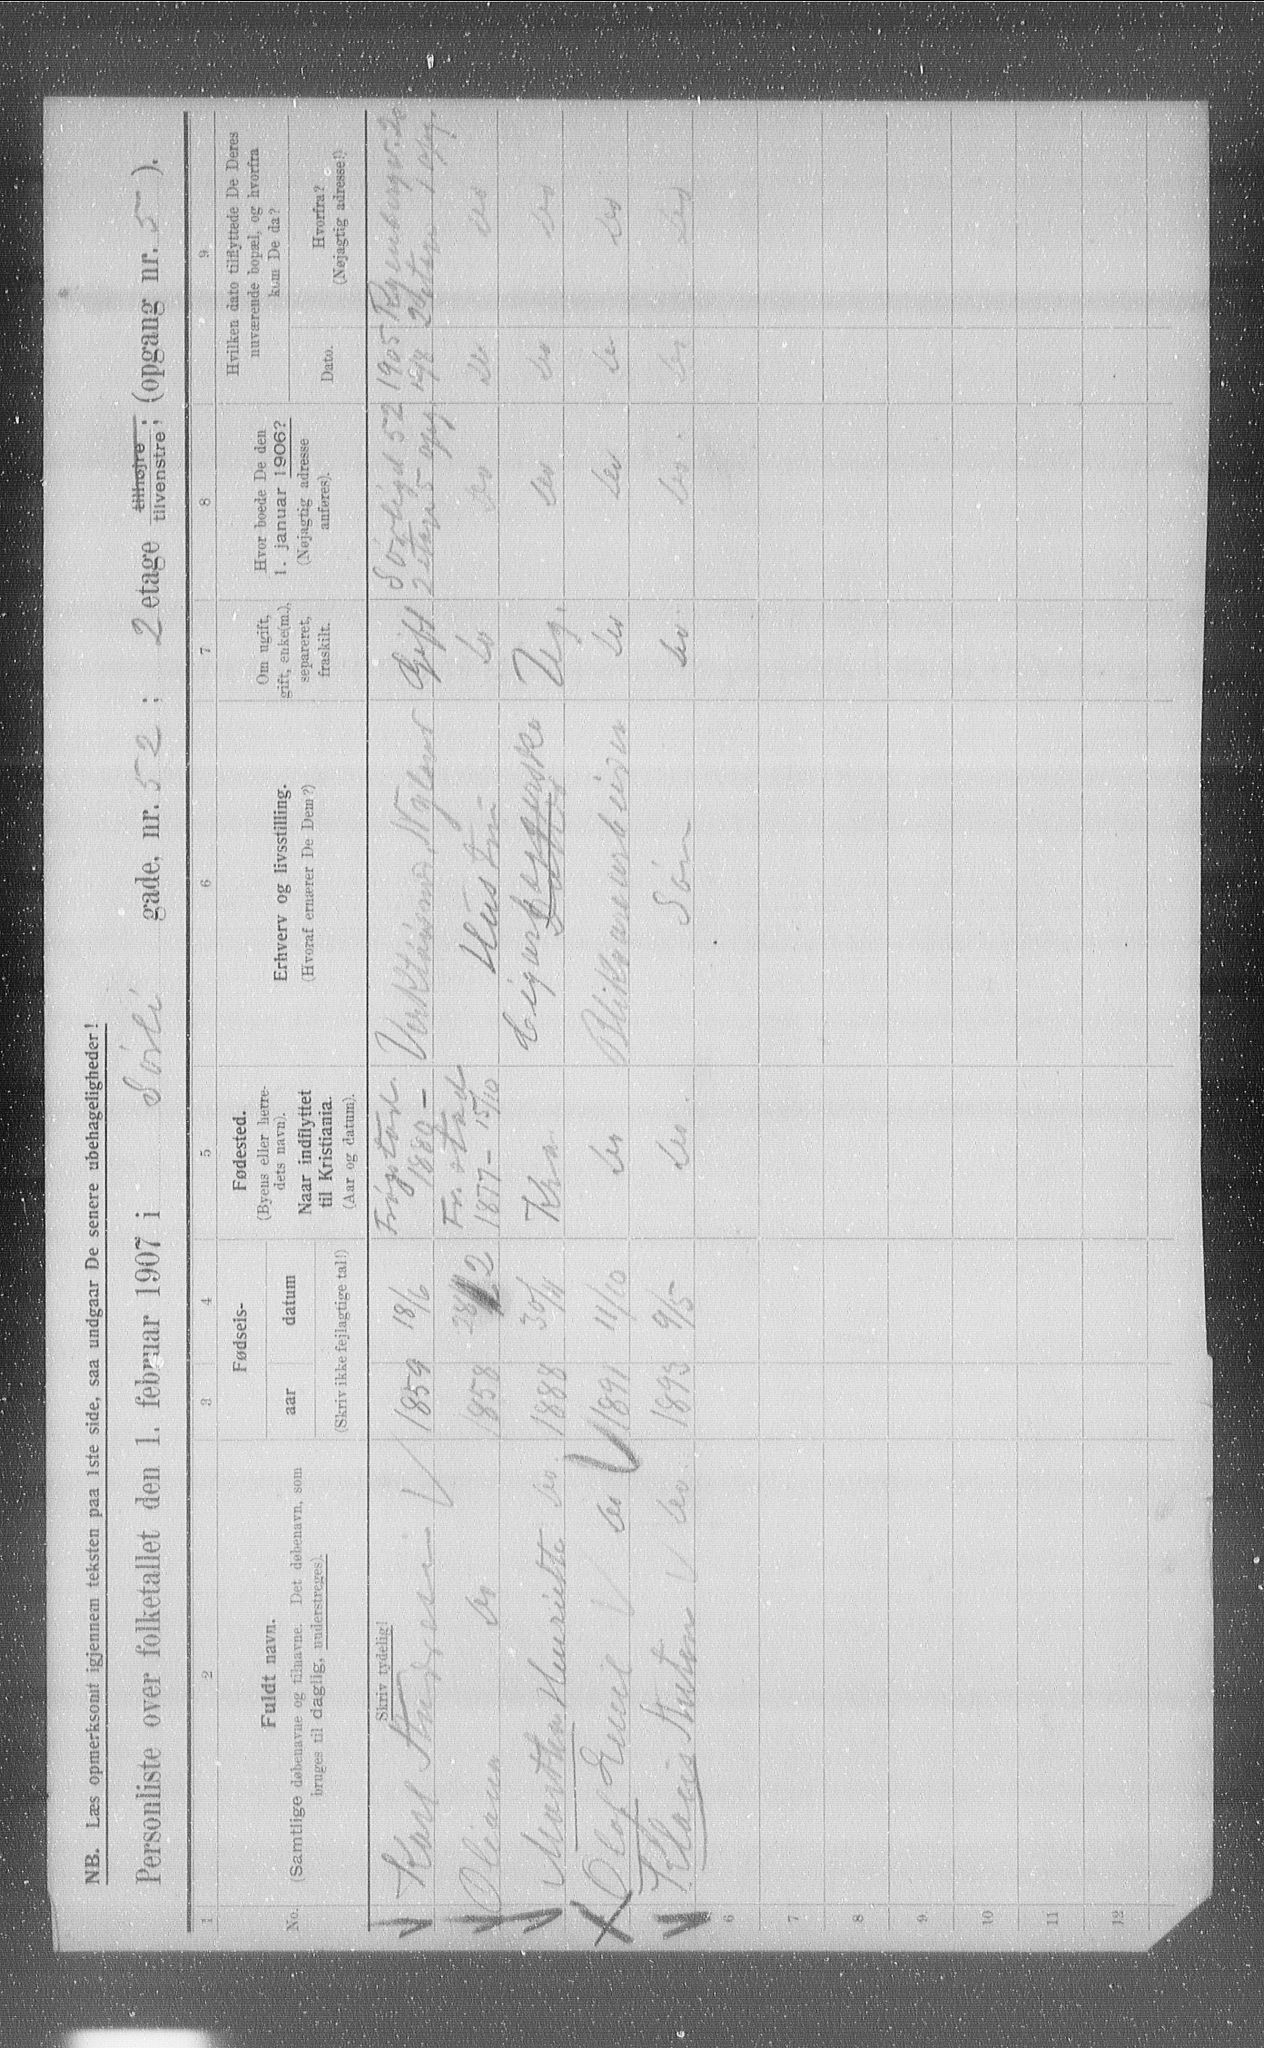 NB. Læs opmerksomt igjennem teksten paa 1ste side, saa undgaar De senere ubehageligheder!
Personliste over folketallet den 1. februar 1907 i Sörli gade, nr. 52 ; 2 etage tilhøjre ; tilvenstre ; (opgang nr. 5 ).
1 2 3 4 5 6 7 8 9
No.
Fuldt navn.
(Samtlige døbenavne og tilnavne. Det døbenavn, som
bruges til daglig, understreges).
Fødsels-
aar datum
(Skriv ikke fejlagtige tal!)
Fødested.
(Byens eller herre-
dets navn).
Naar indflyttet
til Kristiania.
(Aar og datum).
Erhverv og livsstilling.
(Hvoraf ernærer De Dem?)
Om ugift,
gift, enke(m.),
separeret,
fraskilt.
Hvor boede De den
1. januar 1906?
(Nøjagtig adresse
anføres).
Hvilken dato tilflyttede De Deres
nuværende bopæl, og hvorfra
kom De da?
Dato.
Hvorfra?
(Nøjagtig adresse!)
Skriv tydelig!
Karl 1859 18/6 1880 - Gift Sörligd 52 2 etas 5 opg 1905
Oliana do 1858 2 1877 - 15/10 Hustru do do do do
Marthe Henriette do. 1888 30/11 Kra Ug. do do do
Olaf Emil do 1891 11/10 do Blikvarearbeider do do do do
Anton do. 1893 9/5 do. Sön do. do. do do
6
7
8
9
10
11
12